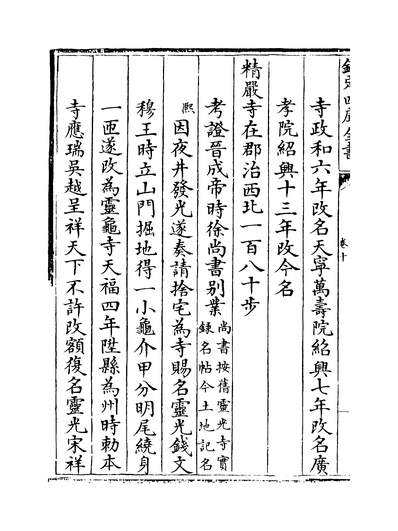 欽定四庫全書
卷十
寺政和六年改名天寧萬壽院紹興七年改名廣
孝院紹興十三年改今名
精嚴寺在郡治西北一百八十步
考證晉成帝時徐尚書别業尚書按舊靈光寺實
錄名帖今土地記名
熙因夜井發光遂奏請捨宅為寺賜名靈光錢文
穆王時立山門掘地得一小龜介甲分明尾繞身
一匝遂改為靈龜寺天福四年陞縣為州時勅本
寺應瑞吳越呈祥天下不許改額復名靈光宋祥